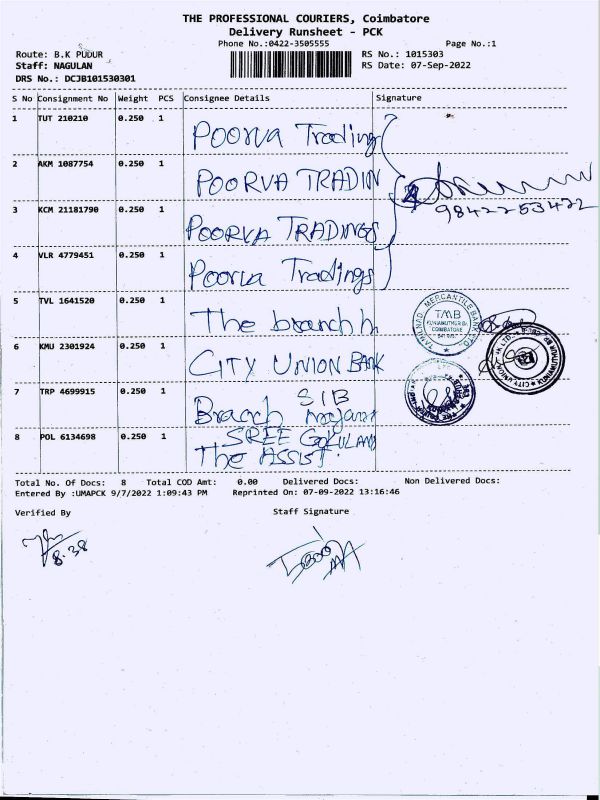 THE PROFESSIONAL COURIERS, Coimbatore
Delivery Runsheet - PCK
Phone No.:0422-3505555 Page No.:1
Route: B.K PUDUR RS No.: 1015303
Staff: NAGULAN RS Date: 07-Sep-2022
DRS No.: DCJB101530301
S No Consignment No Weight PCS Consignee Details Signature
1 TUT 210210 0.250 1 Poorva Trading
2 AKM 1087754 0.250 1 POORVA TRADIN
9842253422
3 KCM 21181790 0.250 1 POORVA TRADINGS
4 VLR 4779451 0.250 1 Poorva Tradings
5 TVL 1641520 0.250 1 The branch
TAMILNAD MERCANTILE BANK LTD
TMB
COIMBATORE
6 KMU 2301924 0.250 1 CITY UNION BANK
CITY UNION
7 TRP 4699915 0.250 1 SIB
Branch
8 POL 6134698 0.250 1 SREE GOKULAM
The ASSIST.
Total No. Of Docs: 8 Total COD Amt: 0.00 Delivered Docs: Non Delivered Docs:
Entered By :UMAPCK 9/7/2022 1:09:43 PM Reprinted On: 07-09-2022 13:16:46
Verified By Staff Signature
8.38